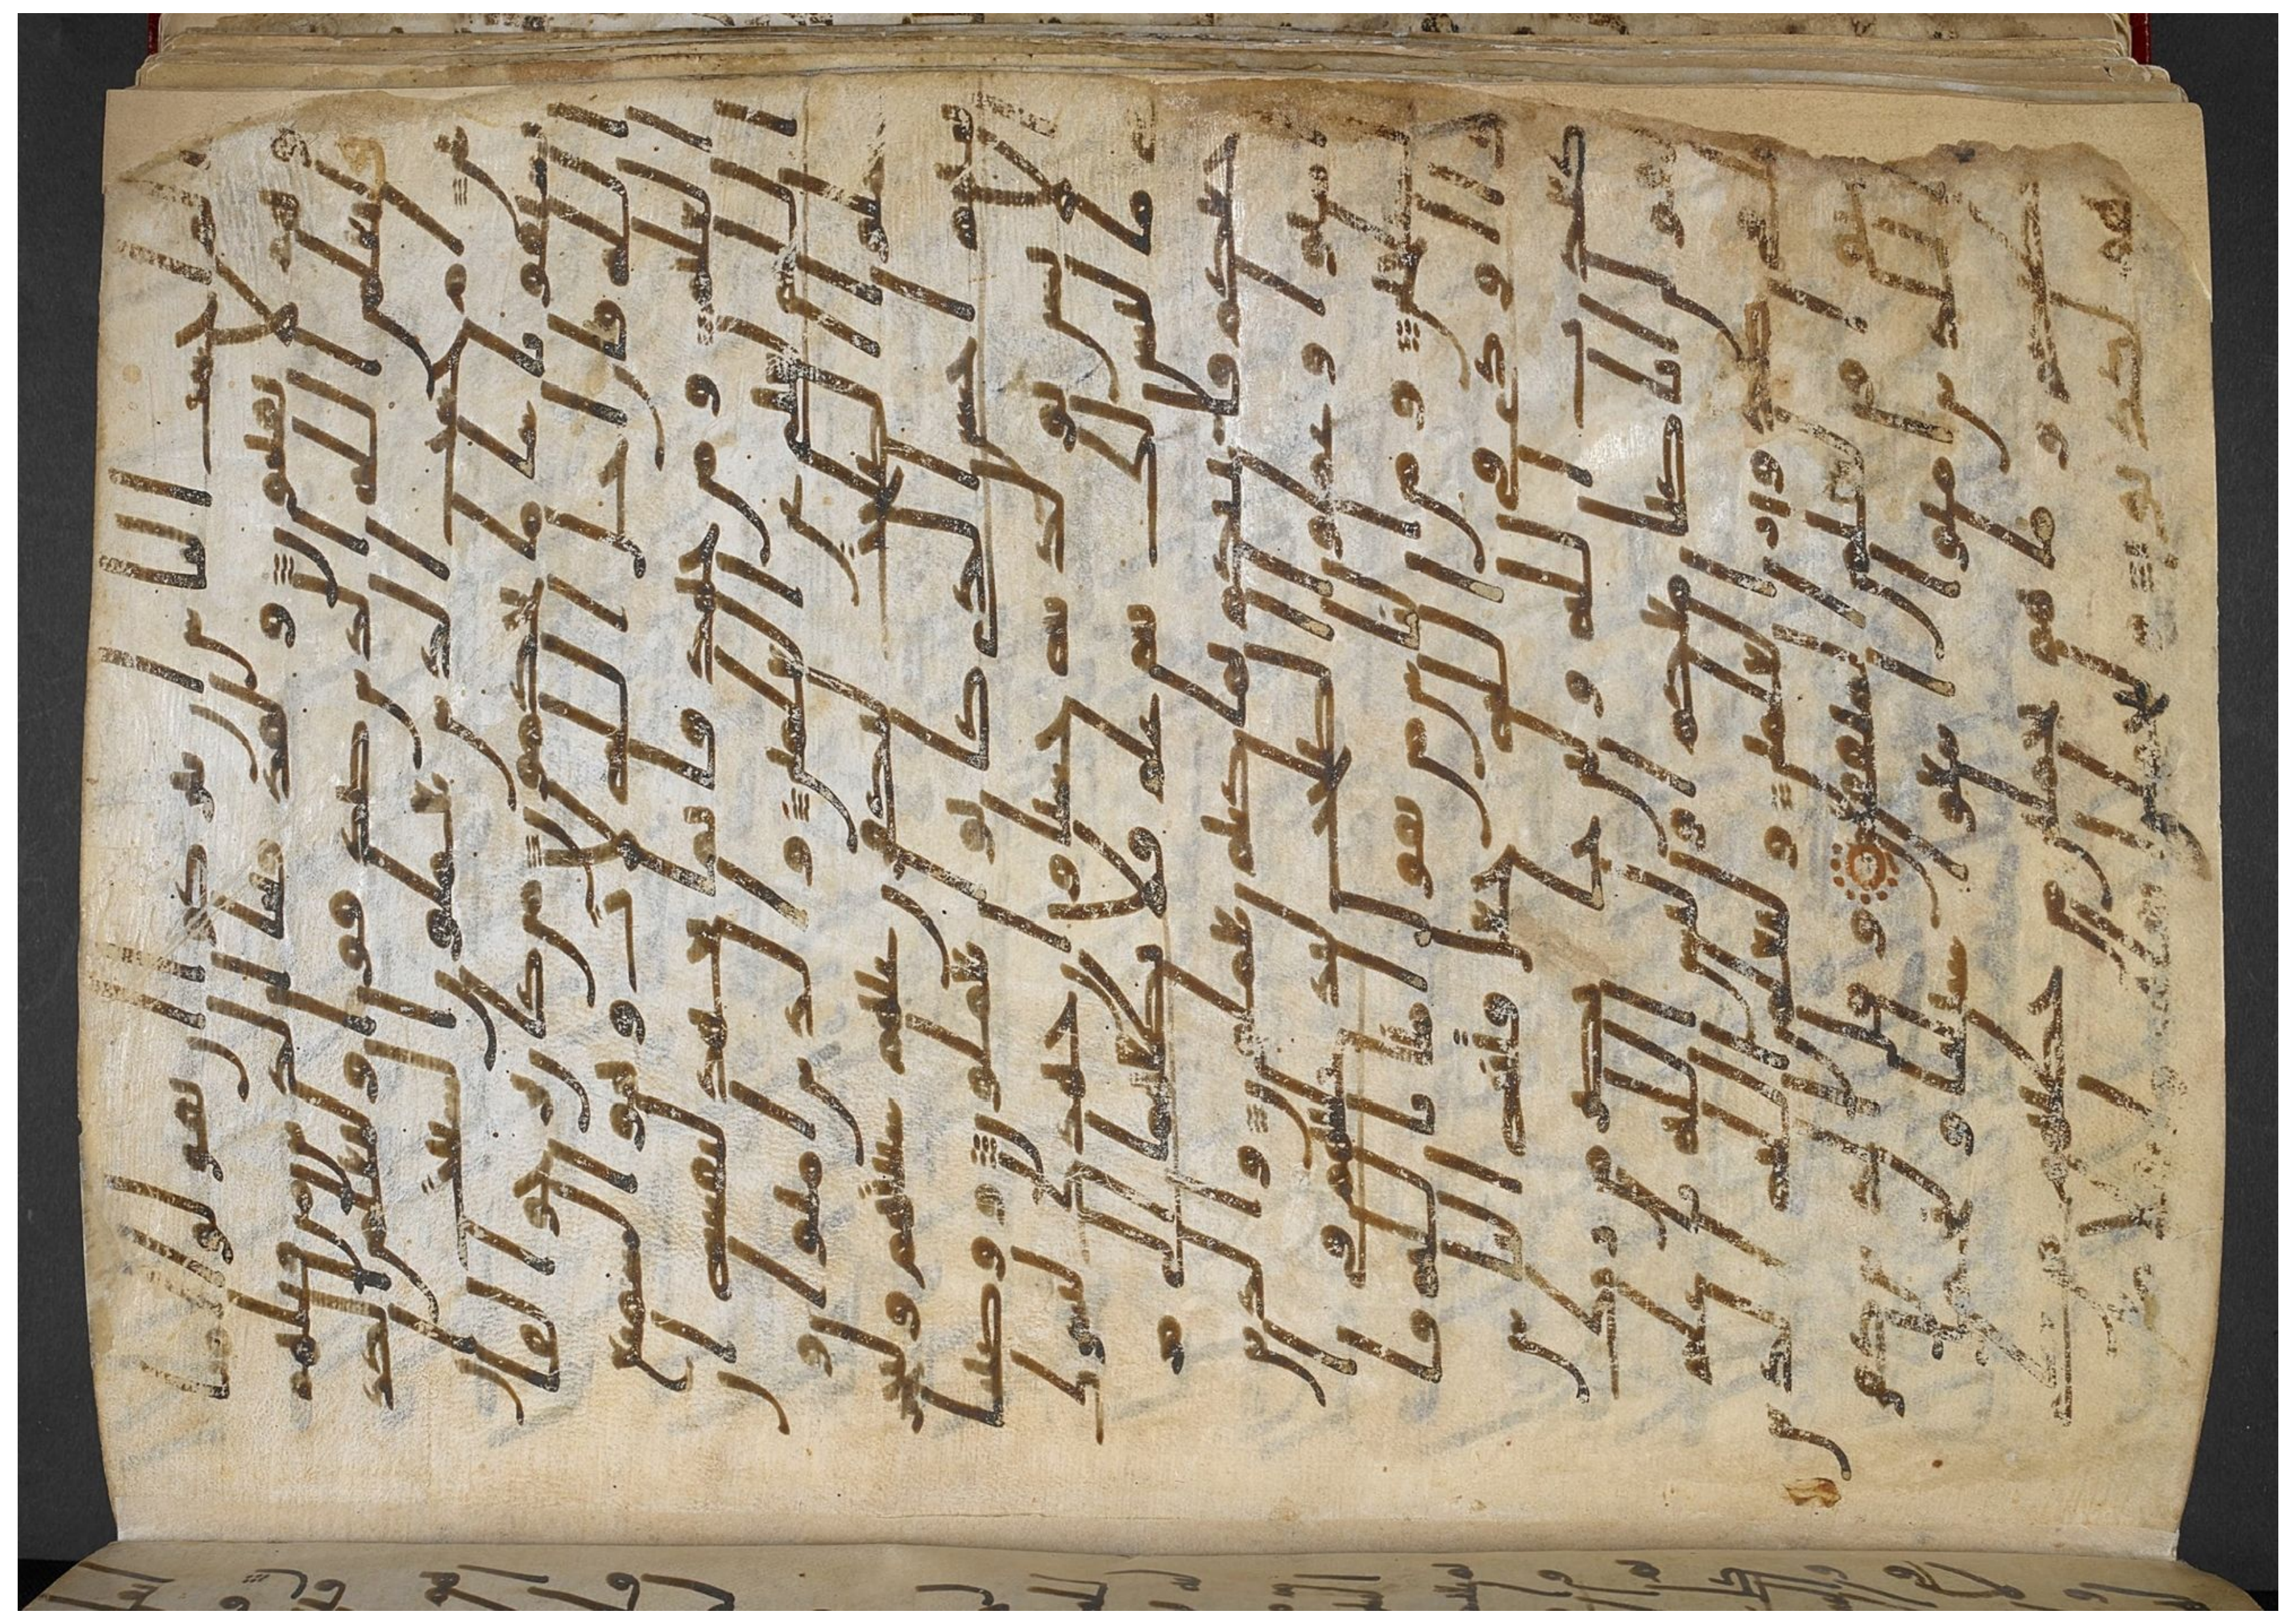 الم احسب الناس ان يتركوا ان يقولوا امنا
وهم لا يفتنون ولقد فتنا الذين من قبلهم
فليعلمن الله الذين صدقوا وليعلمن الكذ
بين ام حسب الذين يعملون السيات
ان يسبقونا سا ما يحكمون من كان يرجوا لقا
الله فان اجل الله لات وهو السميع
العليم ومن جهد فانما يجهد لنفسه ا
ن الله لغني عن العلمين والذين امنوا و
عملوا الصلحت لنكفرن عنهم سياتهم ولنجز
ينهم احسن الذي كانوا يعملون ووصينا
الانسن بولديه حسنا وان جهدك لتشرك
بي ما ليس لك به علم فلا تطعهما الي
مرجعكم فانبيكم بما كنتم تعملون والذين
امنوا وعملوا الصلحت لندخلنهم في
الصلحين ومن الناس من يقول امنا بالله فا
ذا اوذي في الله جعل فتنه الناس
كعذب الله ولين جا نصر من ربك
ليقولن انا كنا معكم اوليس الله باعلم
بما في صدور العلمين وليعلمن الله الذين
امنوا وليعلمن المنفقين وقال الذين كفر
وا للذين امنوا اتبعوا سبيلنا ولنحمل
خطيكم وما هم بحملين من خطيهم